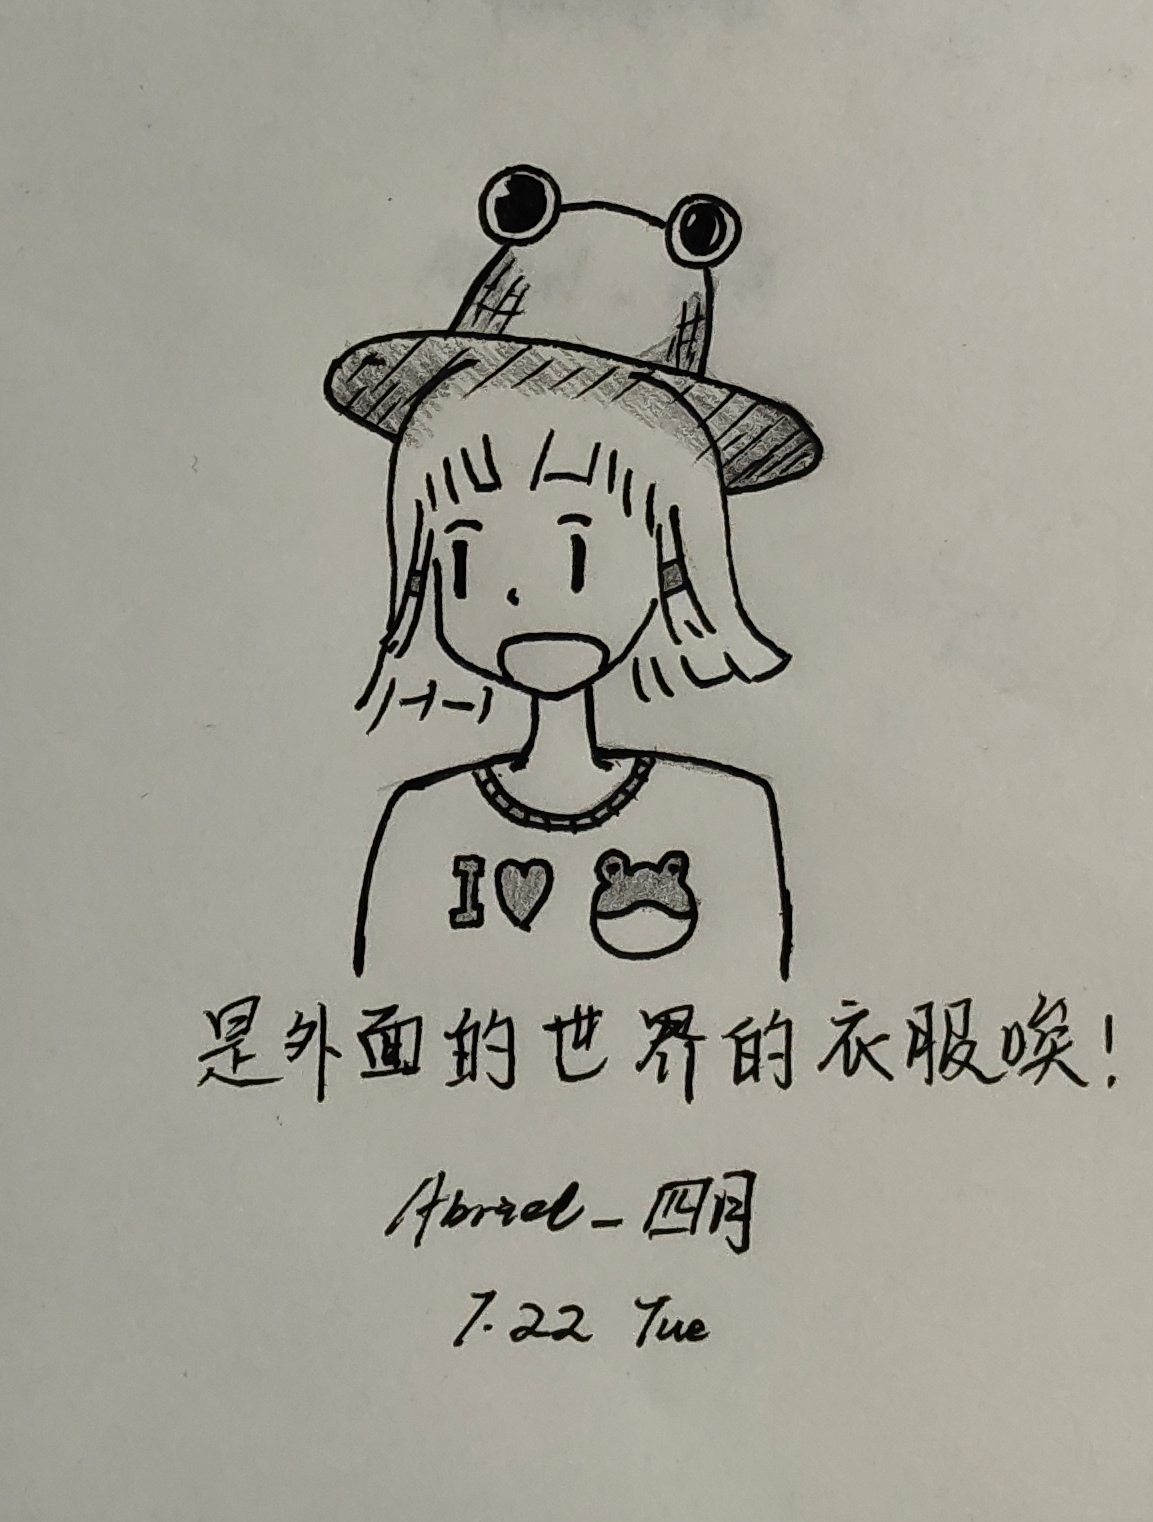 I
是外面的世界的衣服唉!
Abriel_四月
7.22 Tue